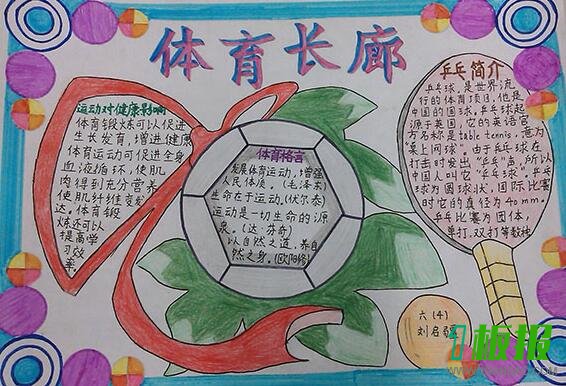 体育长廊
运动对健康影响
体育锻炼可以促进
生长发育,增进健康
体育运动可促进全身
血液循环,使肌
肉得到充分营养
使肌纤维变发
达。体育锻
炼还可以
提高学
习效
率。
体育格言
发展体育运动,增强
人民体质。(毛泽东)
生命在于运动。(伏尔泰)
运动是一切生命的源
泉。(达·芬奇)
以自然之道,养自
然之身。(欧阳修)
乒乓简介
乒乓球,是世界流
行的体育项目,他是
中国的国球,乒乓球起
源于英国,它的英语官
方名称是table tennis,意为
“桌上网球”。由于乒乓球在
打击时发出“乒乓”声,所以
中国人叫它“乒乓球”。乒乓
球为圆球状,国际比赛
时它的直径为40mm.
乒乓比赛为团体,
单打,双打等数种
六(4)
刘启
板报